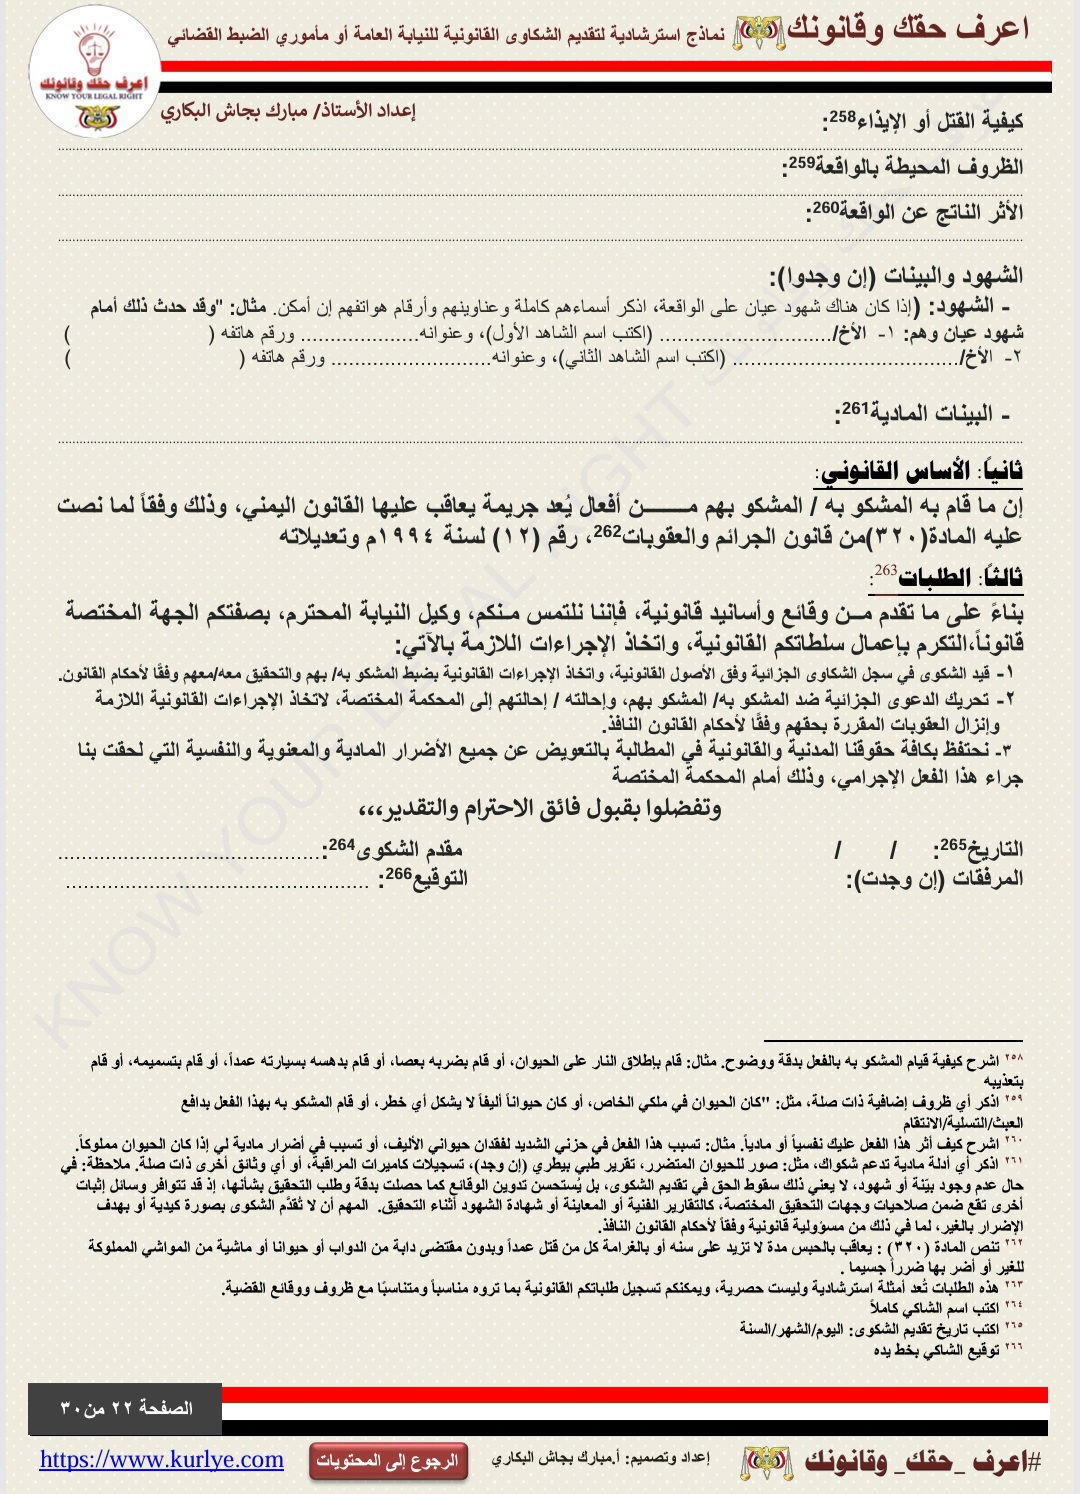 اعرف حقك وقانونك نماذج استرشادية لتقديم الشكاوى القانونية للنيابة العامة أو مأموري الضبط القضائي
اعرف حقك وقانونك
KNOW YOUR LEGAL RIGHT
إعداد الأستاذ/ مبارك بجاش البكاري
كيفية القتل أو الإيذاء258:
الظروف المحيطة بالواقعة259:
الأثر الناتج عن الواقعة260:
الشهود والبينات (إن وجدوا):
- الشهود: (إذا كان هناك شهود عيان على الواقعة، اذكر أسماءهم كاملة وعناوينهم وأرقام هواتفهم إن أمكن. مثال: "وقد حدث ذلك أمام
شهود عيان وهم: ١- الأخ/............................. (اكتب اسم الشاهد الأول)، وعنوانه.................... ورقم هاتفه ( )
٢- الأخ/...................................... (اكتب اسم الشاهد الثاني)، وعنوانه........................... ورقم هاتفه ( )
- البينات المادية261:
ثانياً: الأساس القانوني:
إن ما قام به المشكو به / المشكو بهم مـــــــن أفعال يُعد جريمة يعاقب عليها القانون اليمني، وذلك وفقاً لما نصت
عليه المادة(٣٢٠)من قانون الجرائم والعقوبات262، رقم (١٢) لسنة ١٩٩٤م وتعديلاته
ثالثاً: الطلبات263:
بناءً على ما تقدم مــن وقائع وأسانيد قانونية، فإننا نلتمس مـنكم، وكيل النيابة المحترم، بصفتكم الجهة المختصة
قانوناً،التكرم بإعمال سلطاتكم القانونية، واتخاذ الإجراءات اللازمة بالآتي:
١- قيد الشكوى في سجل الشكاوى الجزائية وفق الأصول القانونية، واتخاذ الإجراءات القانونية بضبط المشكو به/ بهم والتحقيق معه/معهم وفقًا لأحكام القانون.
٢- تحريك الدعوى الجزائية ضد المشكو به/ المشكو بهم، وإحالته / إحالتهم إلى المحكمة المختصة، لاتخاذ الإجراءات القانونية اللازمة
وإنزال العقوبات المقررة بحقهم وفقًا لأحكام القانون النافذ.
٣- نحتفظ بكافة حقوقنا المدنية والقانونية في المطالبة بالتعويض عن جميع الأضرار المادية والمعنوية والنفسية التي لحقت بنا
جراء هذا الفعل الإجرامي، وذلك أمام المحكمة المختصة
وتفضلوا بقبول فائق الاحترام والتقدير،،،
التاريخ265: / / مقدم الشكوى264:............................................
المرفقات (إن وجدت): التوقيع266: ...................................................
٢٥٨ اشرح كيفية قيام المشكو به بالفعل بدقة ووضوح. مثال: قام بإطلاق النار على الحيوان، أو قام بضربه بعصا، أو قام بدهسه بسيارته عمداً، أو قام بتسميمه، أو قام
بتعذيبه
٢٥٩ اذكر أي ظروف إضافية ذات صلة، مثل: "كان الحيوان في ملكي الخاص، أو كان حيواناً أليفاً لا يشكل أي خطر، أو قام المشكو به بهذا الفعل بدافع
العبث/التسلية/الانتقام
٢٦٠ اشرح كيف أثر هذا الفعل عليك نفسياً أو مادياً. مثال: تسبب هذا الفعل في حزني الشديد لفقدان حيواني الأليف، أو تسبب في أضرار مادية لي إذا كان الحيوان مملوكاً.
٢٦١ اذكر أي أدلة مادية تدعم شكواك، مثل: صور للحيوان المتضرر، تقرير طبي بيطري (إن وجد)، تسجيلات كاميرات المراقبة، أو أي وثائق أخرى ذات صلة. ملاحظة: في
حال عدم وجود بيّنة أو شهود، لا يعني ذلك سقوط الحق في تقديم الشكوى، بل يُستحسن تدوين الوقائع كما حصلت بدقة وطلب التحقيق بشأنها، إذ قد تتوافر وسائل إثبات
أخرى تقع ضمن صلاحيات وجهات التحقيق المختصة، كالتقارير الفنية أو المعاينة أو شهادة الشهود أثناء التحقيق. المهم أن لا تُقدَّم الشكوى بصورة كيدية أو بهدف
الإضرار بالغير، لما في ذلك من مسؤولية قانونية وفقاً لأحكام القانون النافذ.
٢٦٢ تنص المادة (٣٢٠) : يعاقب بالحبس مدة لا تزيد على سنه أو بالغرامة كل من قتل عمداً وبدون مقتضى دابة من الدواب أو حيوانا أو ماشية من المواشي المملوكة
للغير أو أضر بها ضرراً جسيما .
٢٦٣ هذه الطلبات تُعد أمثلة استرشادية وليست حصرية، ويمكنكم تسجيل طلباتكم القانونية بما تروه مناسباً ومتناسبًا مع ظروف ووقائع القضية.
٢٦٤ اكتب اسم الشاكي كاملاً
٢٦٥ اكتب تاريخ تقديم الشكوى: اليوم/الشهر/السنة
٢٦٦ توقيع الشاكي بخط يده
الصفحة ٢٢ من٣٠
#اعرف _حقك_ وقانونك إعداد وتصميم: أ.مبارك بجاش البكاري الرجوع إلى المحتويات https://www.kurlye.com
KNOW YOUR LEGAL RIGHT